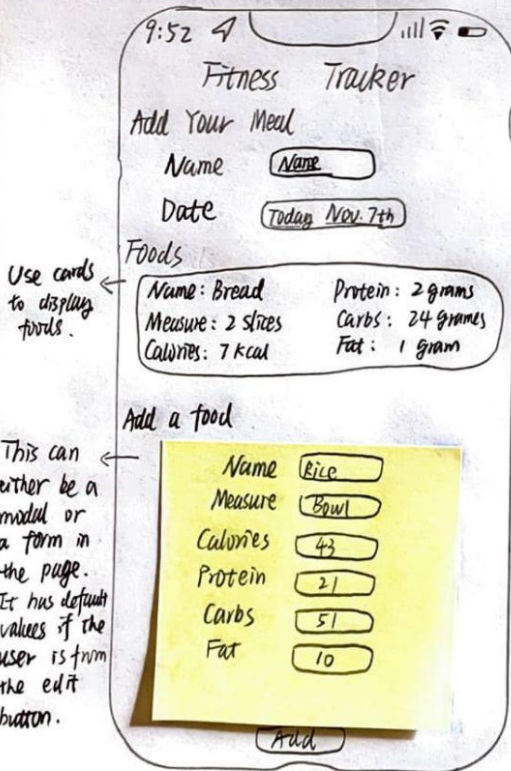 9:52
Fitness Tracker
Add Your Meal
Name Name
Date Today Nov. 7th
Foods
Use cards
to display
foods.
Name: Bread Protein: 2 grams
Measure: 2 slices Carbs: 24 grames
Calories: 7 kcal Fat: 1 gram
Add a food
This can
either be a
modal or
a form in
the page.
It has default
values if the
user is from
the edit
button.
Name Rice
Measure Bowl
Calories 43
Protein 21
Carbs 51
Fat 10
Add